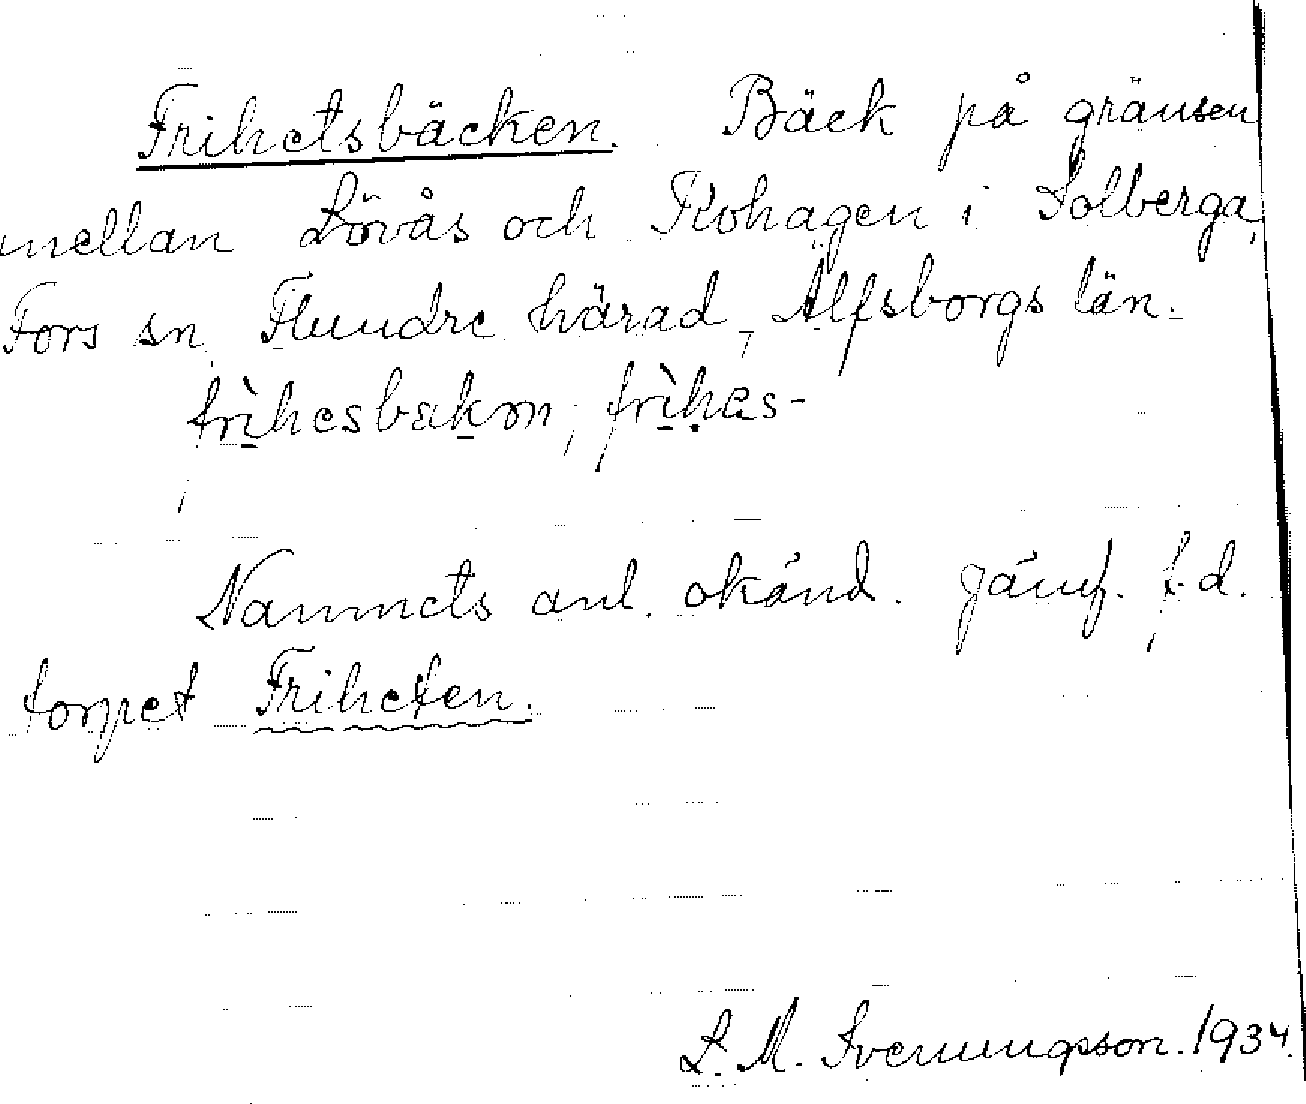 Frihetsbäcken. Bäck på gränsen
mellan Lövås och Kohagen i Solberga,
Fors sn, Flundre härad, Älfsborgs län.
frìhesbakɷn, frìhas-
Namnets anl. okänd. Jämf. f.d.
torpet Friheten.
L. M. Svenungsson. 1934.